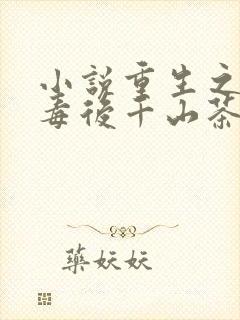 小說重生之
毒後千山茶
藥妖妖